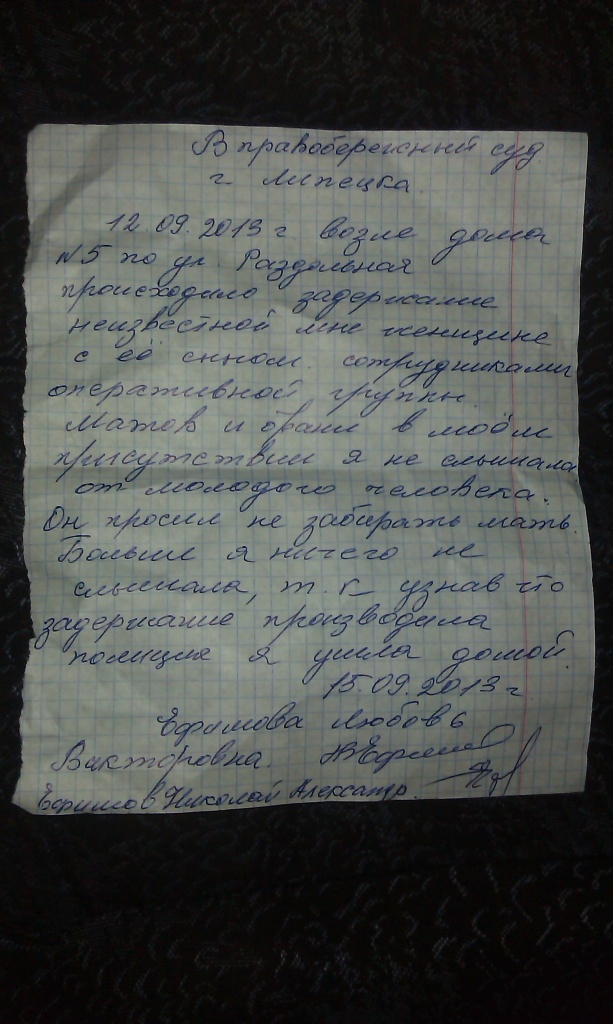 В правобережный суд
г. Липецка.
12.09.2013 г возле дома
№5 по ул. Раздольная
происходило задержание
неизвестной мне женщине
с её сыном. сотрудниками
оперативной группы.
Матов и брани в моём
присутствии я не слышала
от молодого человека.
Он просил не забирать мать.
Больше я ничего не
слышала, т.к узнав что
задержание производила
полиция я ушла домой.
15.09.2013 г
Ефимова Любовь
Викторовна.
Ефимов Николай Александр.